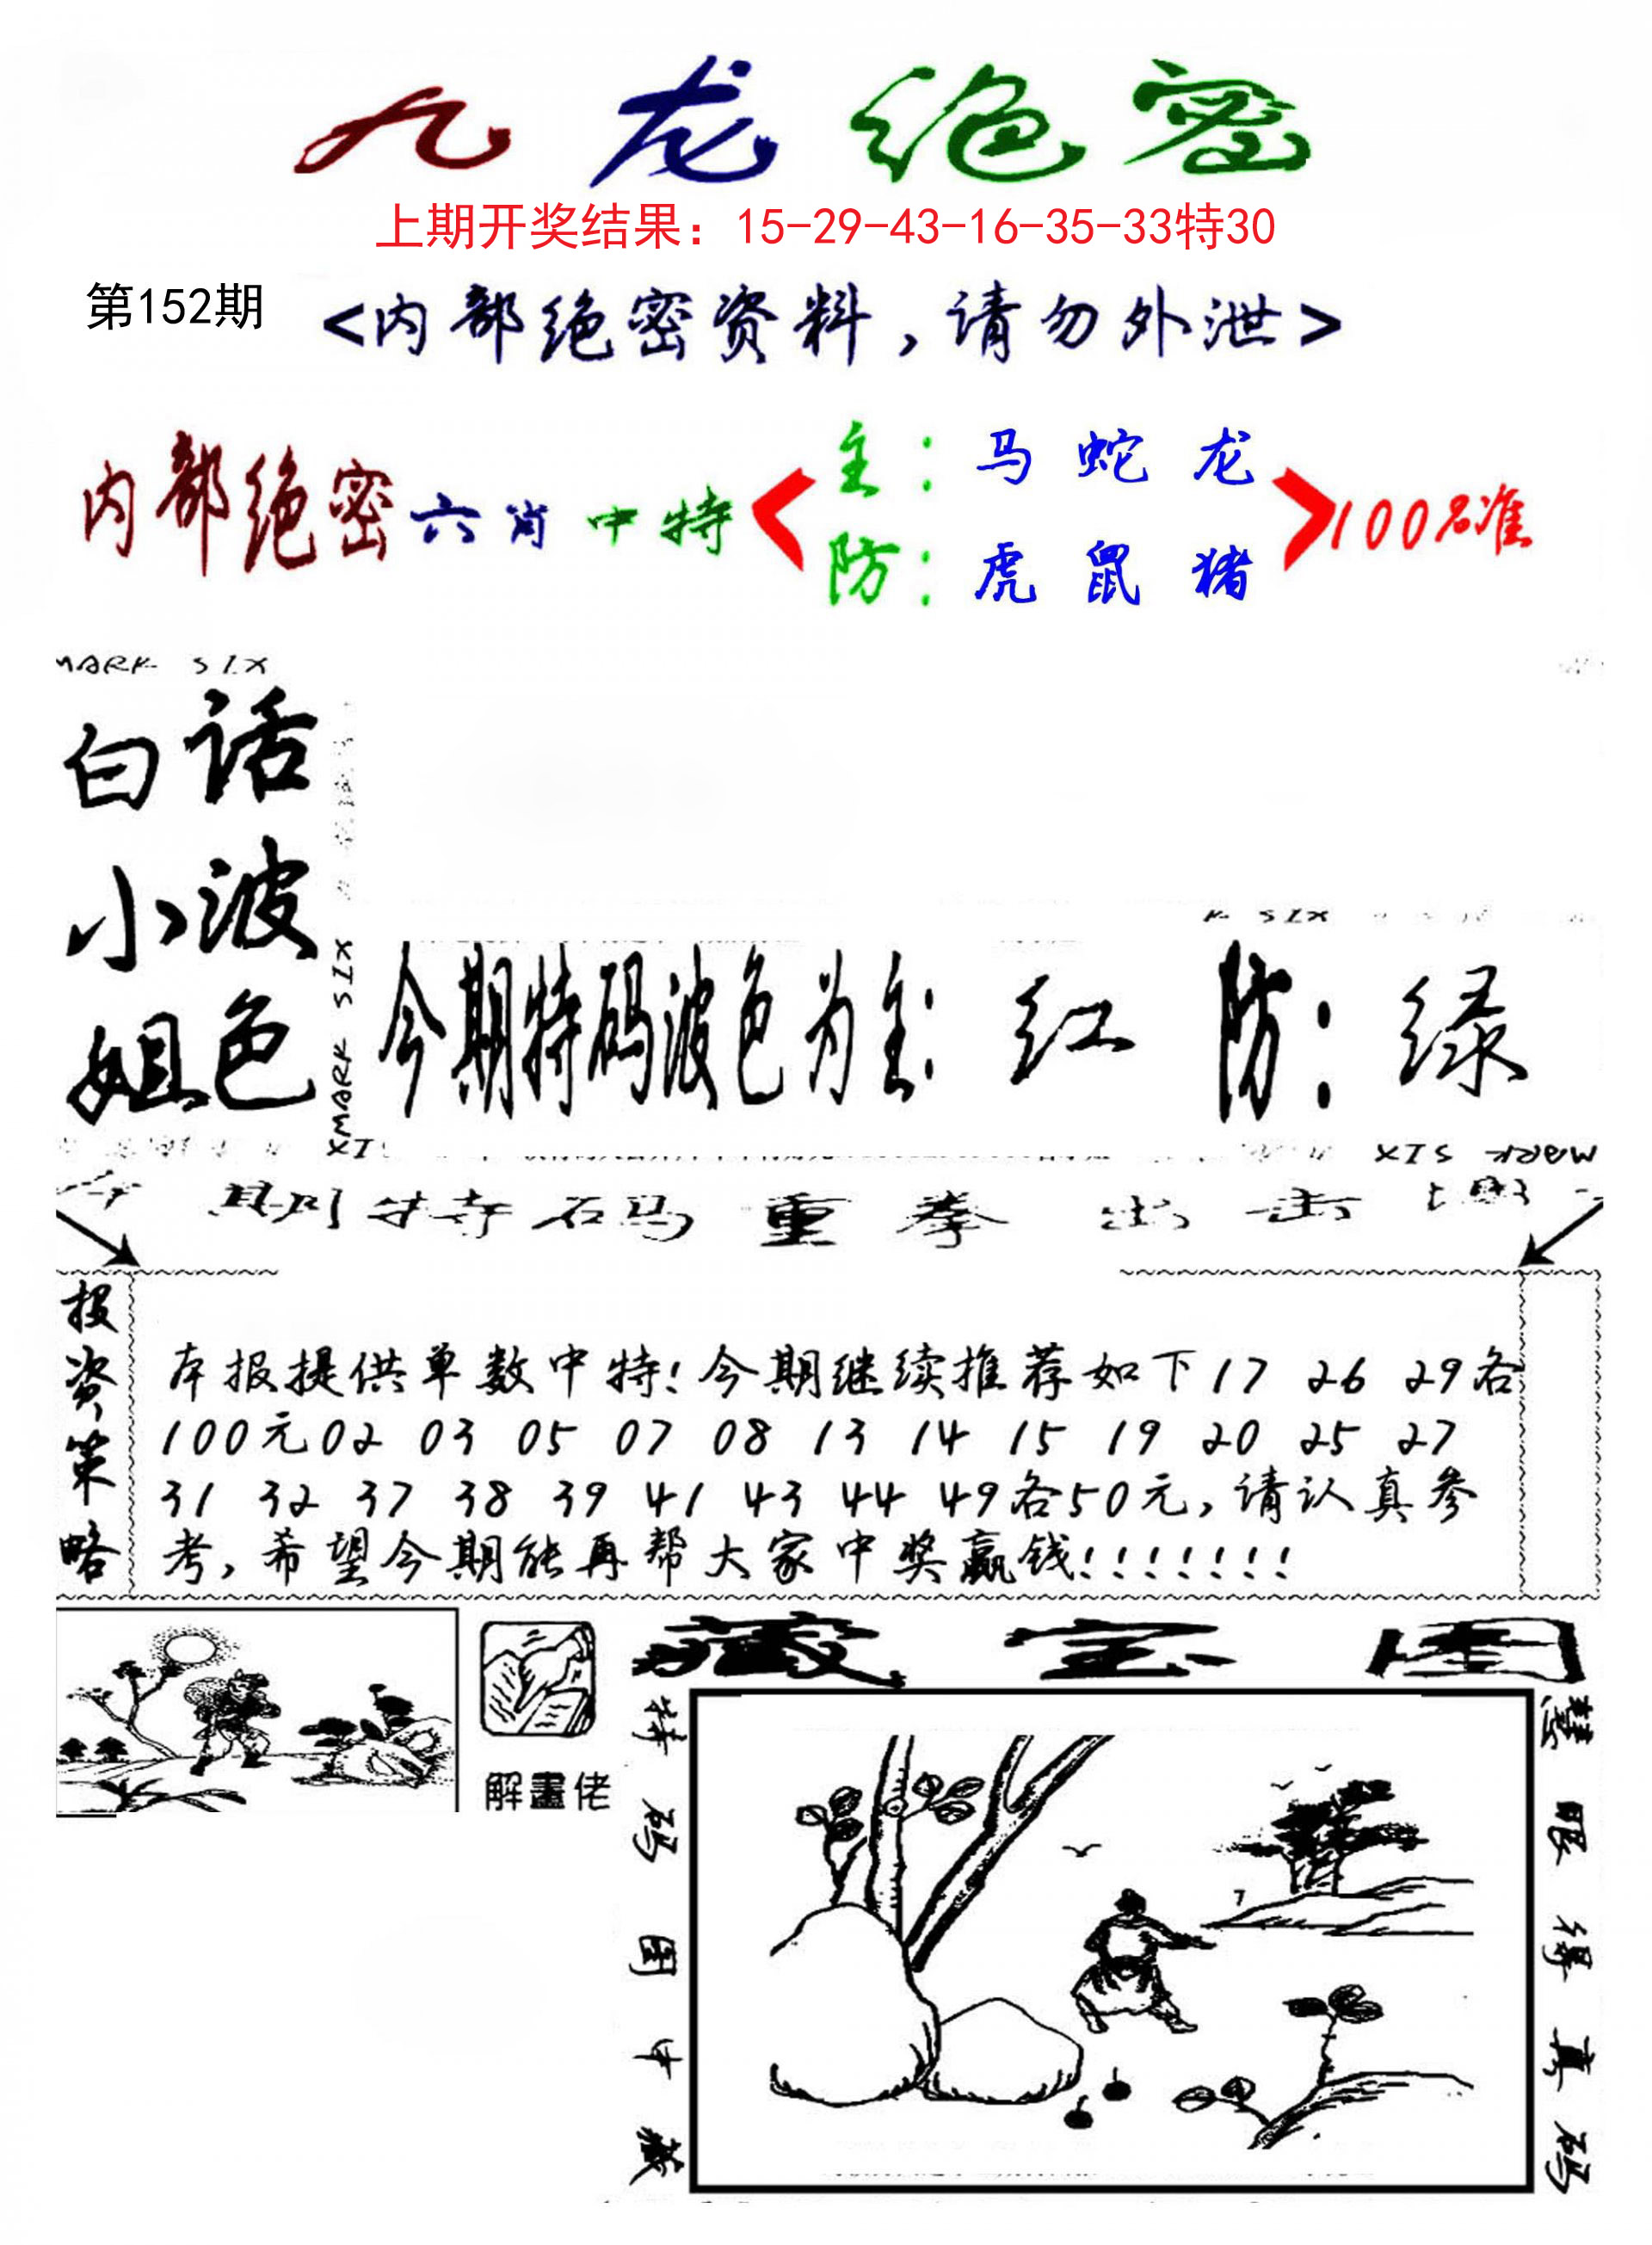 九龙绝密
上期开奖结果：15-29-43-16-35-33特30
第152期
<内部绝密资料，请勿外泄>
内部绝密六肖中特
主：马 蛇 龙
防：虎 鼠 猪
100%准
MARK SIX
白话
小波
姐色
MARK SIX
K SIX
今期特码波色为主：红 防：绿
MARK SIX
期特码重拳出击
投资策略
本报提供单数中特!今期继续推荐如下17 26 29各
100元02 03 05 07 08 13 14 15 19 20 25 27
31 32 37 38 39 41 43 44 49各50元,请认真参
考,希望今期能再帮大家中奖赢钱!!!!!!!
解畫佬
藏宝图
特码图中藏
慧眼得真码
7